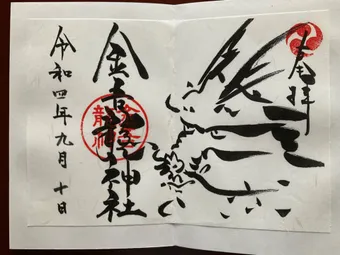 奉拝
金吾龍神社
令和四年九月十日